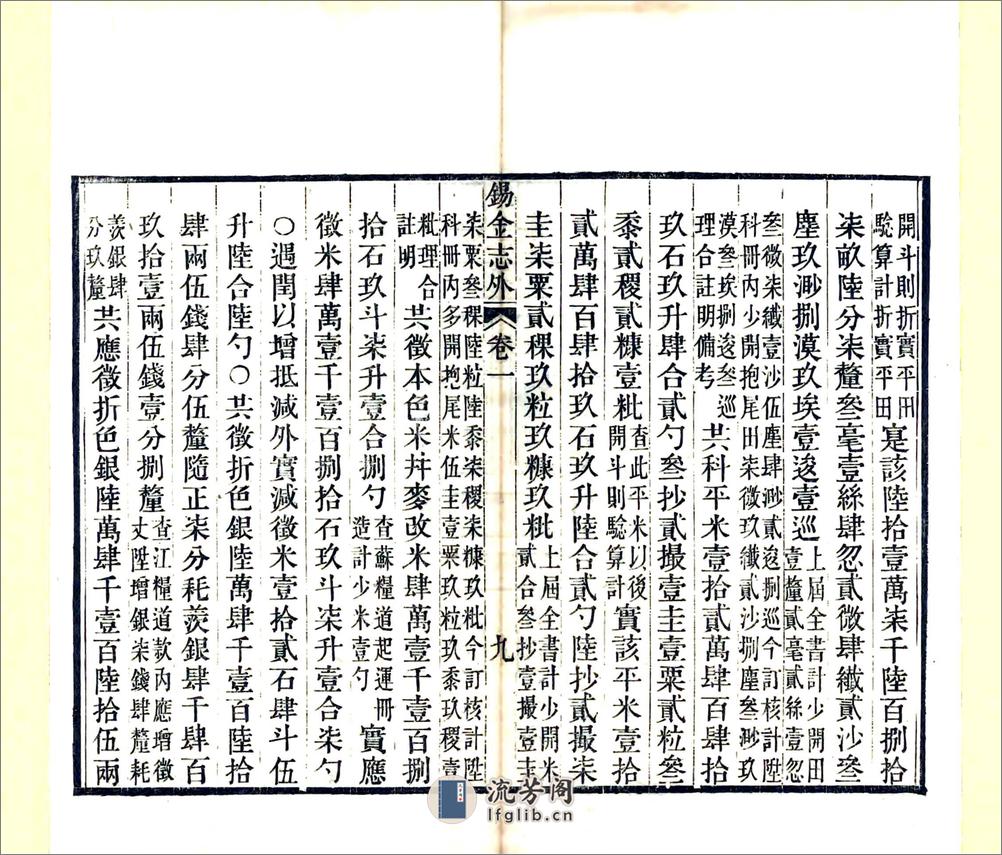 開斗則折實平田
騐算計折實平田
寔該陸拾壹萬柒千陸百捌拾
柒畝陸分柒釐叄毫壹絲肆忽貳微肆纖貳沙叄
塵玖渺捌漠玖埃壹逡壹巡
上屆全書計少開田
壹釐貳毫貳絲壹忽
叄微柒纖壹沙伍塵肆渺貳逡捌巡今訂核計陞
科冊內少開抱尾田柒微玖纖貳沙捌塵叄渺玖
漠叄埃捌逡叄巡
理合註明備考
共科平米壹拾貳萬肆百肆拾
玖石玖升肆合貳勺叄抄貳撮壹圭壹粟貳粒叄
黍貳稷貳糠壹粃
查此平米以後
開斗則騐算計
實該平米壹拾
貳萬肆百肆拾玖石玖升陸合貳勺陸抄貳撮柒
圭柒粟貳稞玖粒玖糠玖粃
上屆全書計少開米
貳合叄抄壹撮壹圭
錫金志外 卷一 九
柒粟叄稞陸粒陸黍柒稷柒糠玖粃今訂核計陞
科冊內多開抱尾米伍圭壹粟玖粒玖黍玖稷壹
粃理合
註明
共徵本色米幷麥改米肆萬壹千壹百捌
拾石玖斗柒升壹合捌勺
查蘇糧道起運冊
造計少米壹勺
實應
徵米肆萬壹千壹百捌拾石玖斗柒升壹合柒勺
○遇閏以增抵減外實減徵米壹拾貳石肆斗伍
升陸合陸勺○共徵折色銀陸萬肆千壹百陸拾
肆兩伍錢肆分伍釐隨正柒分耗羨銀肆千肆百
玖拾壹兩伍錢壹分捌釐
查江糧道款內應增徵
丈陞增銀柒錢肆釐耗
羨銀肆
分玖釐
共應徵折色銀陸萬肆千壹百陸拾伍兩
流芳阁
lfglib.cn